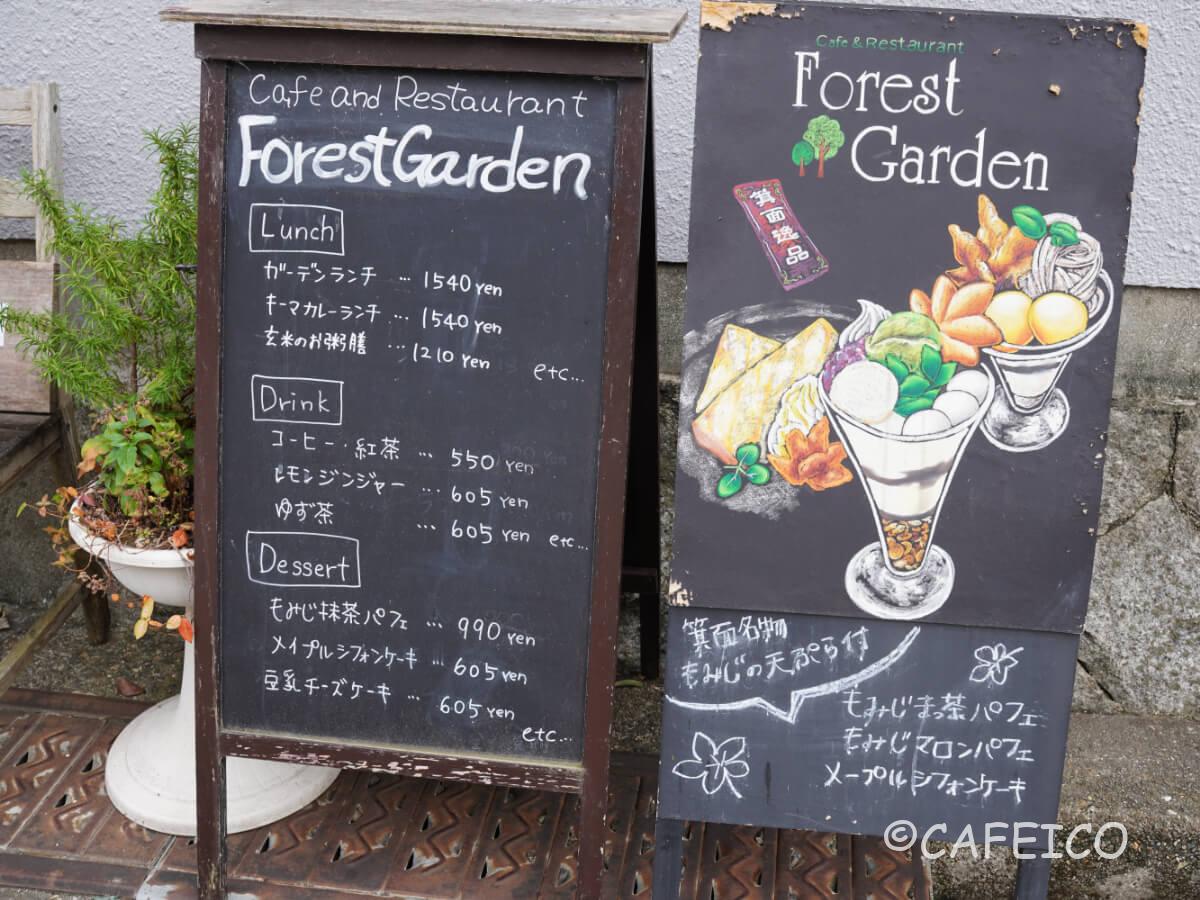 Cafe and Restaurant
Forest Garden
Lunch
ガーデンランチ … 1540 yen
キーマカレーランチ … 1540 yen
玄米のお粥膳 … 1210 yen
etc…
Drink
コーヒー・紅茶 … 550 yen
レモンジンジャー … 605 yen
ゆず茶 … 605 yen etc…
Dessert
もみじ抹茶パフェ … 990 yen
メイプルシフォンケーキ … 605 yen
豆乳チーズケーキ … 605 yen
etc…
Cafe & Restaurant
Forest
Garden
箕面逸品
箕面名物
もみじの天ぷら付
もみじまっ茶パフェ
もみじマロンパフェ
メープルシフォンケーキ
©CAFEICO